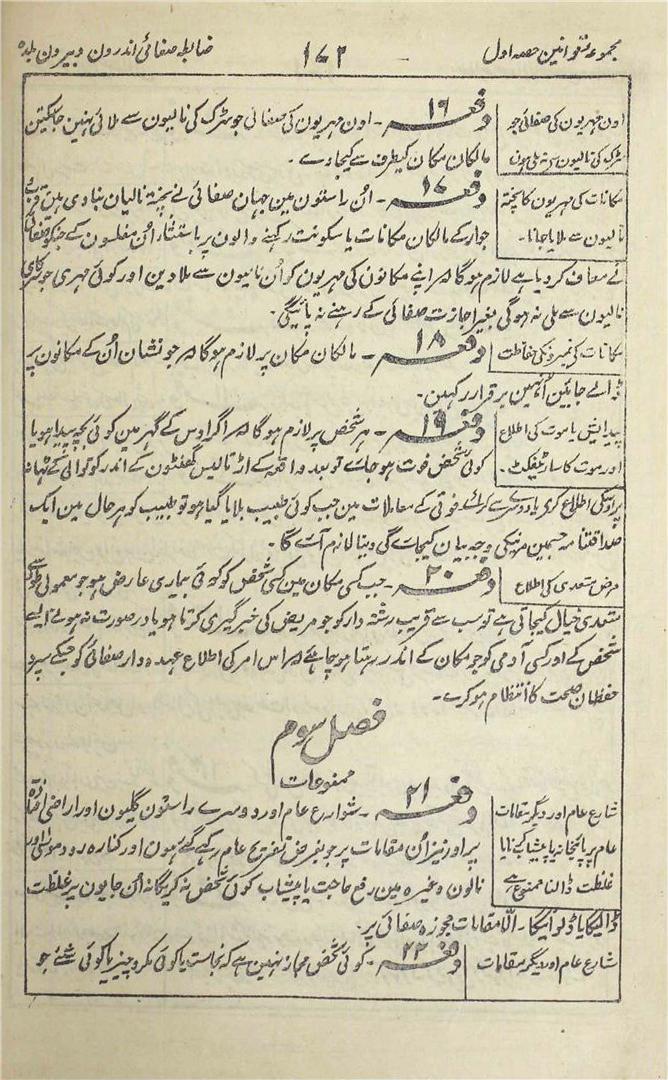 مجموعہ قوانین حصہ اول ۱۷۲ ضابطہ صفائی اندرون و بیرون بلدہ
اون مہریون کی صفائی جو
سڑک کی نالیون سے نہ ملی ہون
دفعہ ۱۶ - اون مہریون کی صفائی جو سڑک کی نالیون سے ملائی نہین جاسکتین
مالکان مکان کیطرف سے کیجاوے ۔
مکانات کی مہریون کا پختہ
نالیون سے ملایا جانا ۔
دفعہ ۱۷ - اُن راستون مین جہان صفائی نے پختہ نالیان بنادی ہین قرب و
جوار کے مالکان مکانات یا سکونت رکہنے والون پر باستثنار اُن مفلسون کے جنکو صفائی
نے معاف کردیا ہے لازم ہوگا کہ اپنے مکانون کی مہریون کو اُن نالیون سے ملادین اور کوئی مہری جو سرکاری
نالیون سے ملی نہ ہوگی بغیر اجازت صفائی کے رہنے نہ پائیگی ۔
مکانات کی نمبرونکی حفاظت
دفعہ ۱۸ - مالکان مکان پر لازم ہوگا کہ جو نشان اُن کے مکانون پر
ڈالے جائین اُنہین برقرار رکہین ۔
پیدایش یا موت کی اطلاع
اور موت کا سارٹیفکٹ ۔
دفعہ ۱۹ - ہر شخص پر لازم ہوگا کہ اگر اوس کے گہر مین کوئی بچہ پیدا ہو یا
کوئی شخص فوت ہوجاے تو بعد واقعہ کے اڑتالیس گھنٹون کے اندر کوتوالی کے تہانہ
پر اوسکی اطلاع کری یا دوسرے سے کرائے فوتی کے معاملات مین جب کوئی طبیب بلایا گیا ہو تو طبیب کو ہر حال مین ایک
صداقتنامہ جسمین مرنیکی وجہ بیان کیجاے گی دینا لازم آے گا ۔
مرض متعدی کی اطلاع
دفعہ ۲۰ - جب کسی مکان مین کسی شخص کو کوئی بیماری عارض ہو جو معمولی طور سے
متعدی خیال کیجاتی ہے تو سب سے قریب رشتہ دار کو جو مریض کی خبرگیری کرتا ہو یا در صورت نہ ہونے ایسے
شخص کے اور کسی آدمی کو جو مکان کے اندر رہتا ہو چاہئے کہ اس امر کی اطلاع عہدہ دار صفائی کو جسکے سپرد
حفظان صحت کا انتظام ہو کرے ۔
فصل سوم
ممنوعات
شارع عام اور دیگر مقامات
عام پر پائخانہ یا پیشاب کرنے یا
غلظت ڈالنا ممنوع ہے
دفعہ ۲۱ - شوارع عام اور دوسرے راستون گلیون اور اراضی افتادہ
پر اور نیز اُن مقامات پر جو بغرض تفرج عام رکہے گئے ہون اور کنارہ رود موسی اور
نالون وغیرہ مین رفع حاجت یا پیشاب کوئی شخص نہ کریگا نہ اُن جایون پر غلظت
ڈالیگا یا ڈلوائیگا ۔ الّا مقامات مجوزہ صفائی پر ۔
شارع عام اور دیگر مقامات
دفعہ ۲۲ - کوئی شخص مجاز نہین ہے کہ نجاست یا کوئی مکروہ چیز یا کوئی شئے جو